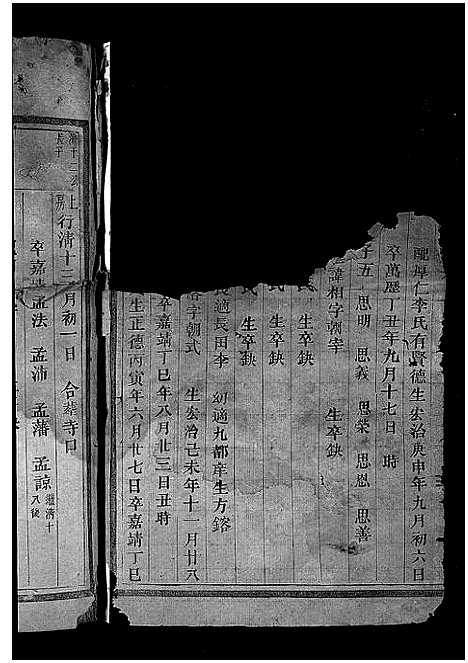 配厚仁李氏有賢德生宏治庚申年九月初六日
卒萬歷丁丑年九月十七日 時
子五 思明 思義 思榮 思恩 思善
諱相字朝宰 生卒缺
氏 生卒缺
生卒缺
長適長田李 幼適九都庠生方鎔
容字朝式 生宏治己未年十一月廿八
卒嘉靖丁巳年八月廿三日丑時
生正德丙寅年六月廿七日卒嘉靖丁巳
上行清十二
月初一日 合葬寺口
卒嘉靖
孟法 孟沛 孟藩 孟諒